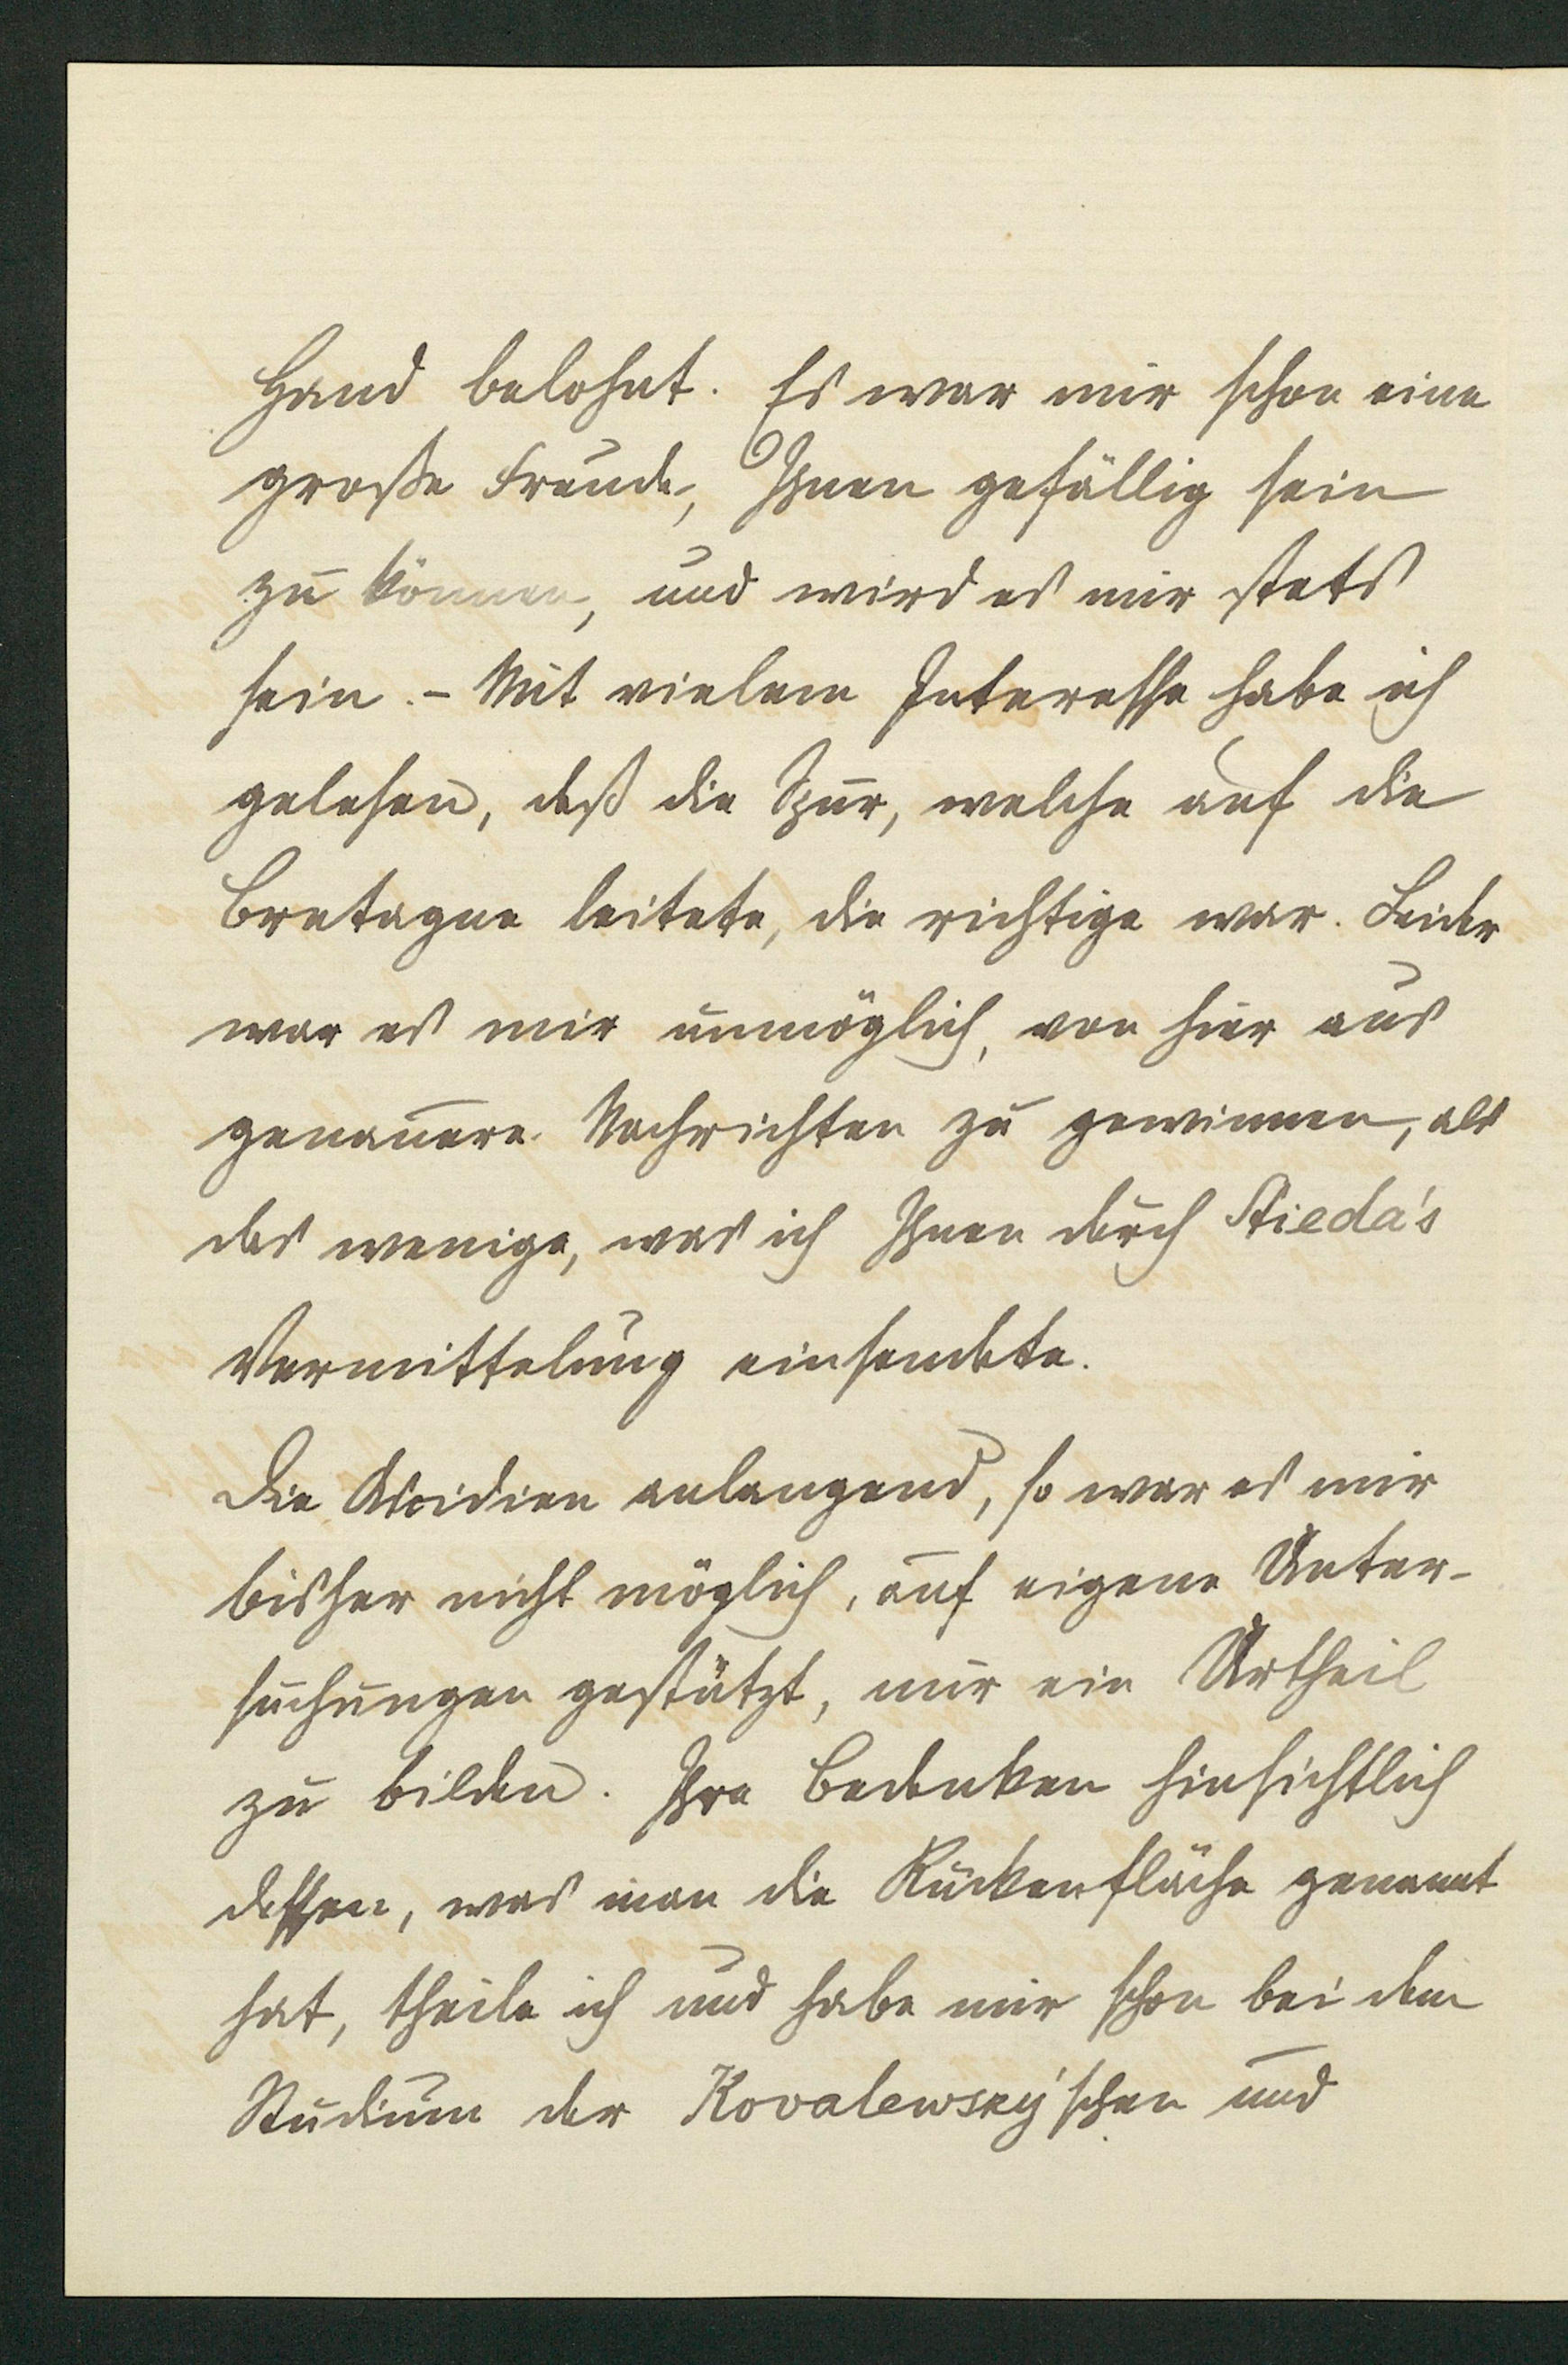 Hand belohnt. Es war mir schon eine
große Freude, Ihnen gefällig sein
zu können, und wird es mir stets
sein. – Mit vielem Interesse habe ich
gelesen, daß die Spur, welche auf die
Bretagne leitete, die richtige war. Leider
war es mir unmöglich, von hier aus
genauere Nachrichten zu gewinnen, als
das wenige, was ich Ihnen durch Stieda's
Vermittelung einsendete.
Die Ascidien anlangend, so war es mir
bisher nicht möglich, auf eigene Unter-
suchungen gestützt, mir ein Urtheil
zu bilden. Ihre Bedenken hinsichtlich
dessen, was man die Rückenfläche genannt
hat, theile ich und habe mir schon bei dem
Studium der Kovalewsky'schen und